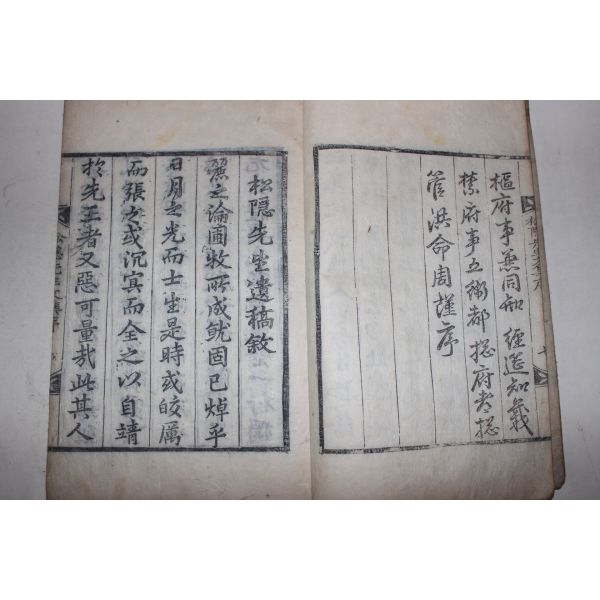 樞府事兼同知 經筵知義
禁府事五衛都揔府都揔
管洪命周謹序
松隠先生遺稿敘
麗之論圃牧所成就固已焯乎
日月之光而士生是時或皎厲
而張之或沉冥而全之以自靖
於先王者又惡可量哉此其人